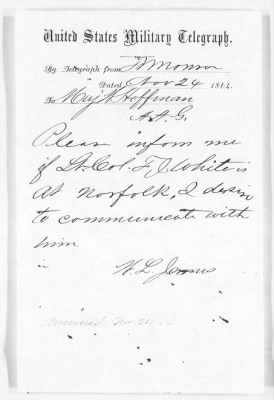 United States Military Telegraph.
By Telegraph from Ft Monroe
Dated Nov 24 1864.
To Maj Hoffman
A.A.G.
Please inform me
if Lt. Col. F. J. White is
at Norfolk, I desire
to communicate with
him
W. L. James
Answered Nov 24/64